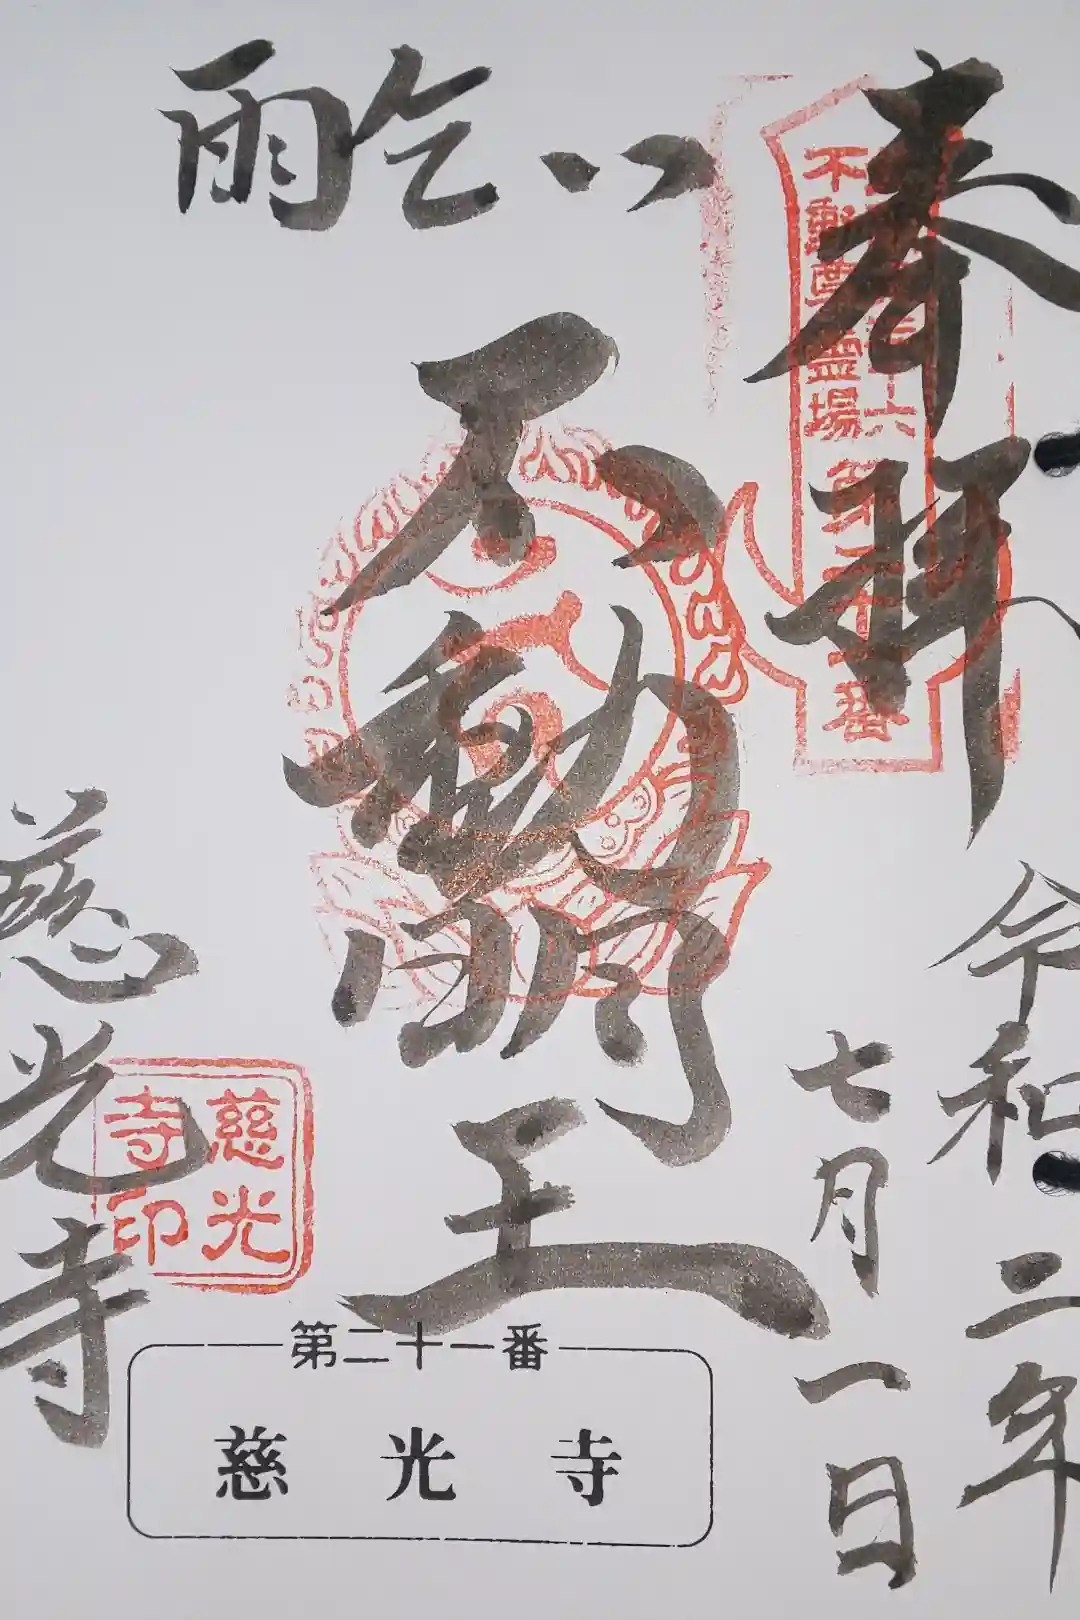 奉拝
令和二年
七月一日
雨乞い
不動明王
慈光寺
不動尊霊場
三十六
番
慈光
寺印
第二十一番
慈光寺